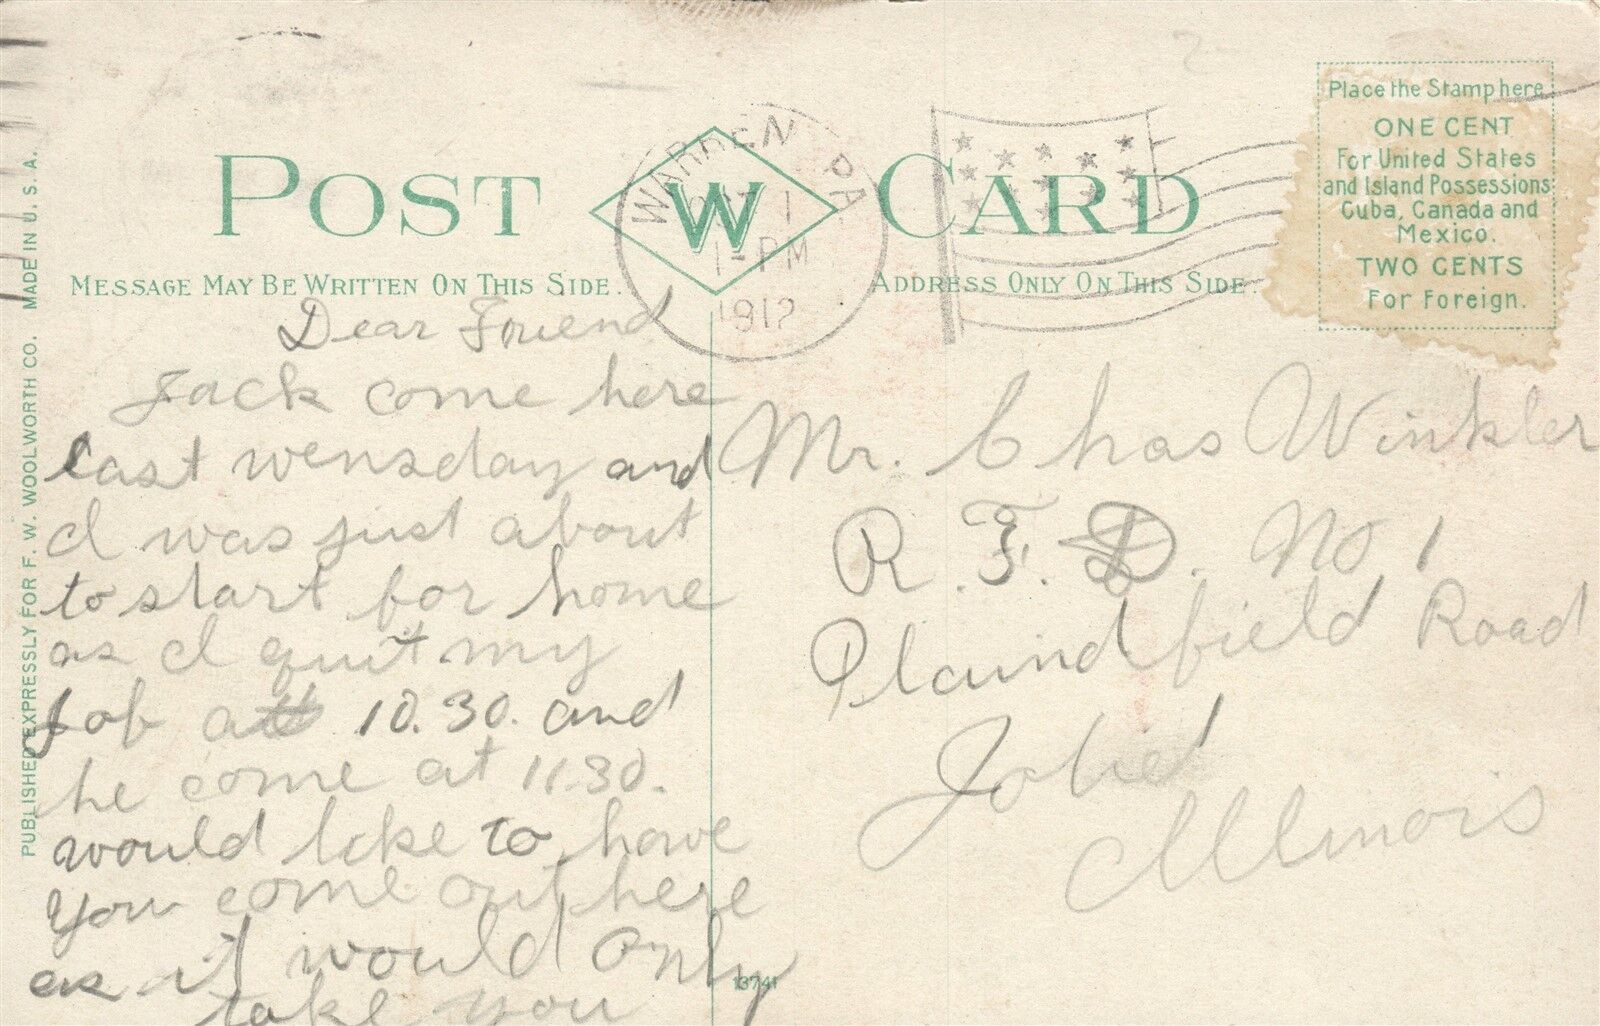 POST W CARD
MESSAGE MAY BE WRITTEN ON THIS SIDE.
ADDRESS ONLY ON THIS SIDE.
WARREN PA.
1
1-PM
1912
Place the Stamp here
ONE CENT
For United States
and Island Possessions
Cuba, Canada and
Mexico.
TWO CENTS
For Foreign.
PUBLISHED EXPRESSLY FOR F. W. WOOLWORTH CO. MADE IN U. S. A.
Dear Friend
Jack come here
last wensday and
I was just about
to start for home
as I quit my
Job at 10.30. and
he come at 11.30.
would like to have
you come out here
as it would only
take you
Mr. Chas Winkler
R. F. D. No 1
Plaindfield Road
Joliet
Illinois
13741